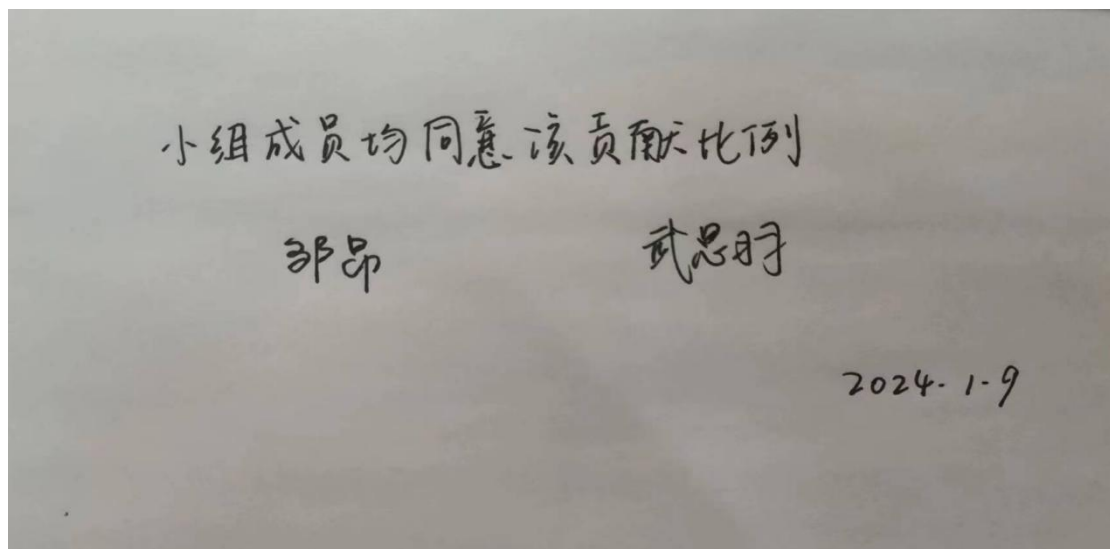 小组成员均同意该贡献比例
邹昂 武思明
2024.1.9